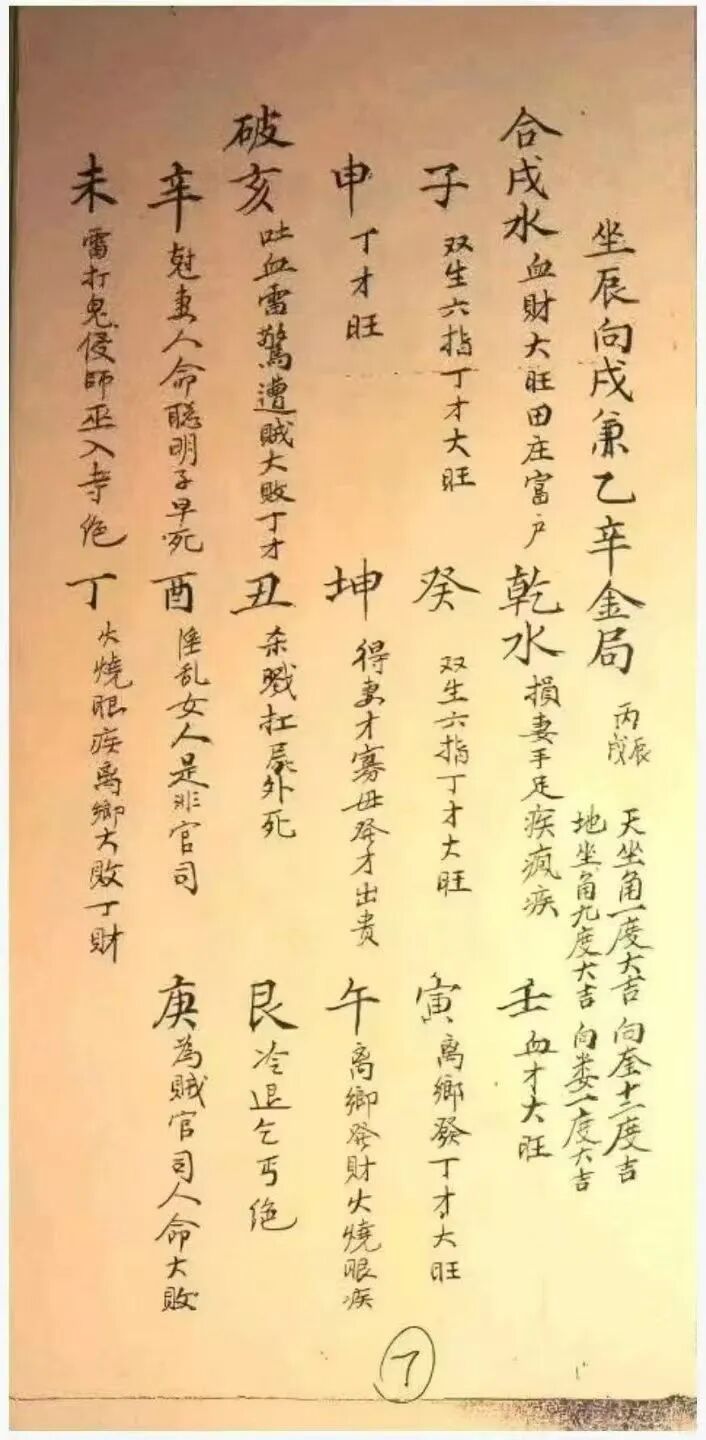 坐辰向戌兼乙辛金局 丙辰 丙戌 天坐角一度大吉 向奎十二度吉
地坐角九度大吉 向娄一度大吉
合戌水 血財大旺田庄富户 乾水 損妻手足疾疯疾 壬 血才大旺
子 双生六指丁才大旺 癸 双生六指丁才大旺 寅 离鄉發丁才大旺
申 丁才旺 坤 得妻才寡母發才出貴 午 离鄉發財火燒眼疾
破亥 吐血雷驚遭賊大敗丁才 丑 杀戮扛屍外死 艮 冷退乞丐绝
辛 尅妻人命聪明子早死 酉 淫乱女人是非官司 庚 為賊官司人命大敗
未 雷打鬼侵師巫入寺绝 丁 火燒眼疾离鄉大敗丁財
7